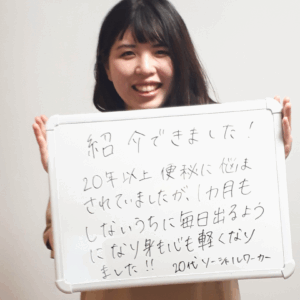 紹介できました!
20年以上便秘に悩ま
されていましたが、1カ月も
しないうちに毎日出るよう
になり身も心も軽くなり
ました!!
20代ソーシャルワーカー